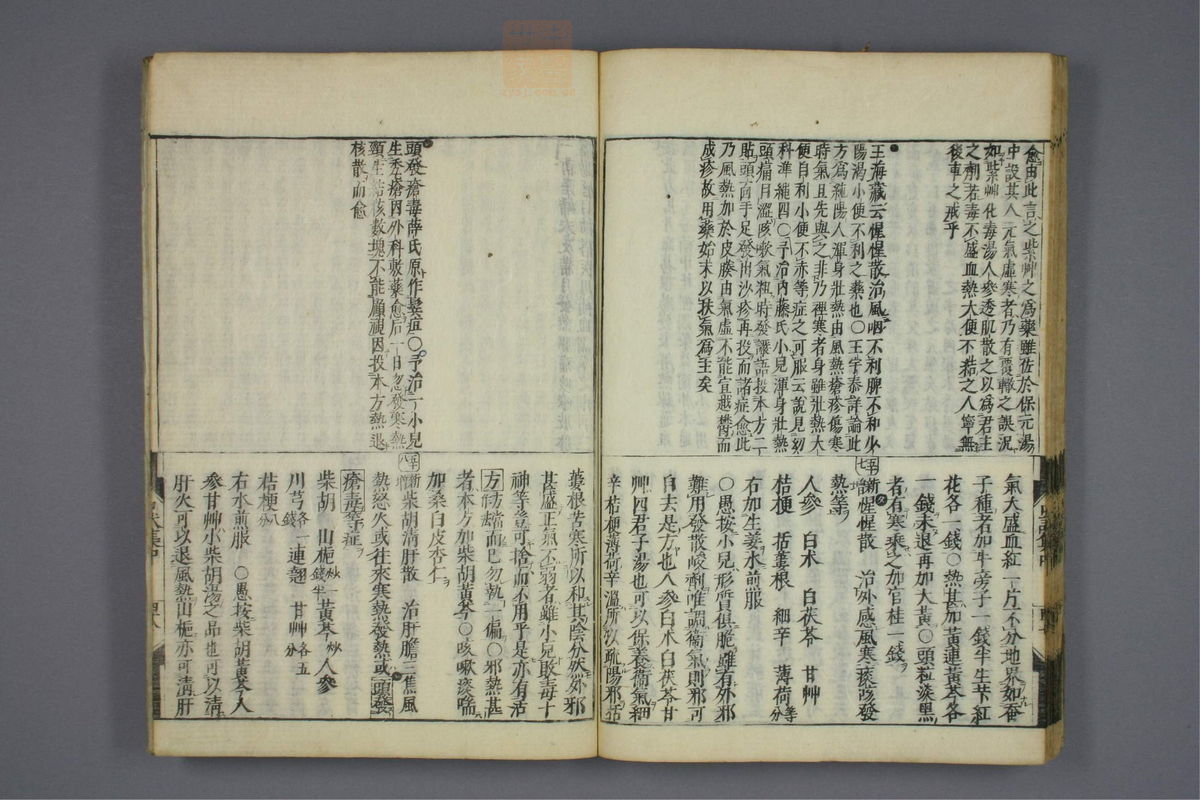 愈由此言之紫艸之爲藥雖佐於保元湯
中設其人元氣虛寒者乃有覆轍之誤況
如紫艸化毒湯人參透肌散之以爲君主
之劑若毒不盛血熱大便不秘之人寧無
後車之戒乎
王海藏云惺惺散治風咽不利脾不和少
陽渴小便不利之藥也〇王宇泰詳論此
方爲純陽人渾身壯熱由風熱瘡疹傷寒
時氣且先與之非乃裡寒者身雖壯熱大
便自利小便不赤等症之可服云說見幼
科準繩四〇予治內藤氏小兒渾身壯熱
頭痛目澀咳嗽氣粗時發譫語投本方二
貼頭面手足發出沙疹再投而諸症愈此
乃風熱加於皮膝由氣虛不能宣越欝而
成疹故用藥如末以扶氣爲主矣
氣大盛血紅一片不分地界如蚕
子種者加牛旁子一錢半生芐紅
花各一錢〇熱甚加黃連黃芩各
一錢未退再加大黃〇頭粒淡黑
者有寒乘之加官桂一錢
新惺惺散 治外感風寒痰咳發
熱等
人參 白朮 白茯苓 甘艸
桔梗 括蔞根 細辛 薄荷等分
右加生姜水煎服
〇愚按小兒形質俱脆雖有外邪
難用發散峻劑唯調衞氣則邪可
自去是方也人參白朮白茯苓甘
艸四君子湯也可以保養衞氣細
辛桔梗薄荷辛溫所以疏陽邪括
頭發瘡毒薛氏原作鬂疽〇予治一小兒
生禿瘡因外科敷藥愈后一日忽發寒熱
頸生結核數塊不能顧視因投本方熱退
核散而愈
蔞根苦寒所以和其陰分然外邪
甚盛正氣不弱者雖小兒敗毒十
神等豈可捨而不用乎是亦有活
方活輩而已勿執一偏〇邪熱甚
者本方加柴胡黃芩〇咳嗽痰喘
加桑白皮杏仁
新增柴胡清肝散 治肝膽三焦風
熱怒火或往來寒熱發熱或頭發
瘡毒等症
柴胡 山梔炒一錢半黃芩炒人參
川芎各一錢連翹 甘艸各五分
桔梗八分
右水煎服 〇愚按柴胡黃芩人
參甘艸小柴胡湯之品也可以清
肝火可以退風熱山梔亦可清肝